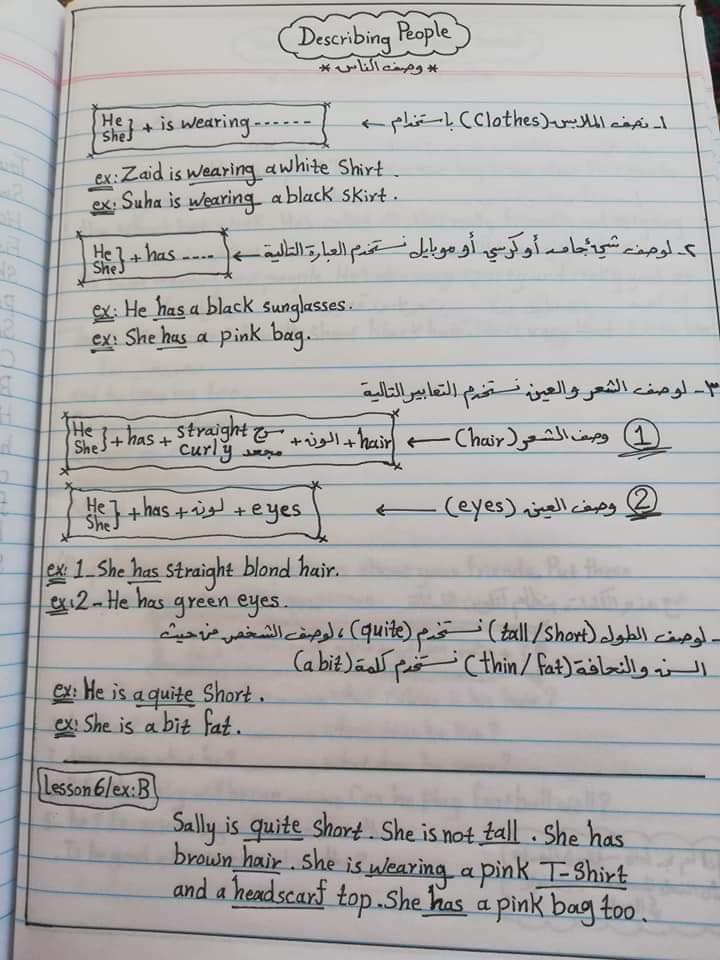 Describing People
* وصف الناس *
١- نصف الملابس (Clothes) باستخدام ← He She } + is wearing ------
ex: Zaid is wearing a white Shirt.
ex: Suha is wearing a black skirt.
٢- لوصف شيء جامد أو كرسي أو موبايل نستخدم العبارة التالية ← He She } + has ----
ex: He has a black sunglasses.
ex: She has a pink bag.
٣- لوصف الشعر والعين نستخدم التعابير التالية
① وصف الشعر (hair) ← He She } + has + straight سرح curly مجعد + اللون + hair
② وصف العين (eyes) ← He She } + has + لون + eyes
ex: 1- She has straight blond hair.
ex: 2- He has green eyes.
- لوصف الطول (tall/short) نستخدم (quite)، لوصف الشخص من حيث
السمنه والنحافة (thin/fat) نستخدم كلمة (a bit)
ex: He is a quite Short.
ex: She is a bit fat.
Lesson 6/ex:B
Sally is quite short. She is not tall. She has
brown hair. She is wearing a pink T-Shirt
and a headscarf top. She has a pink bag too.